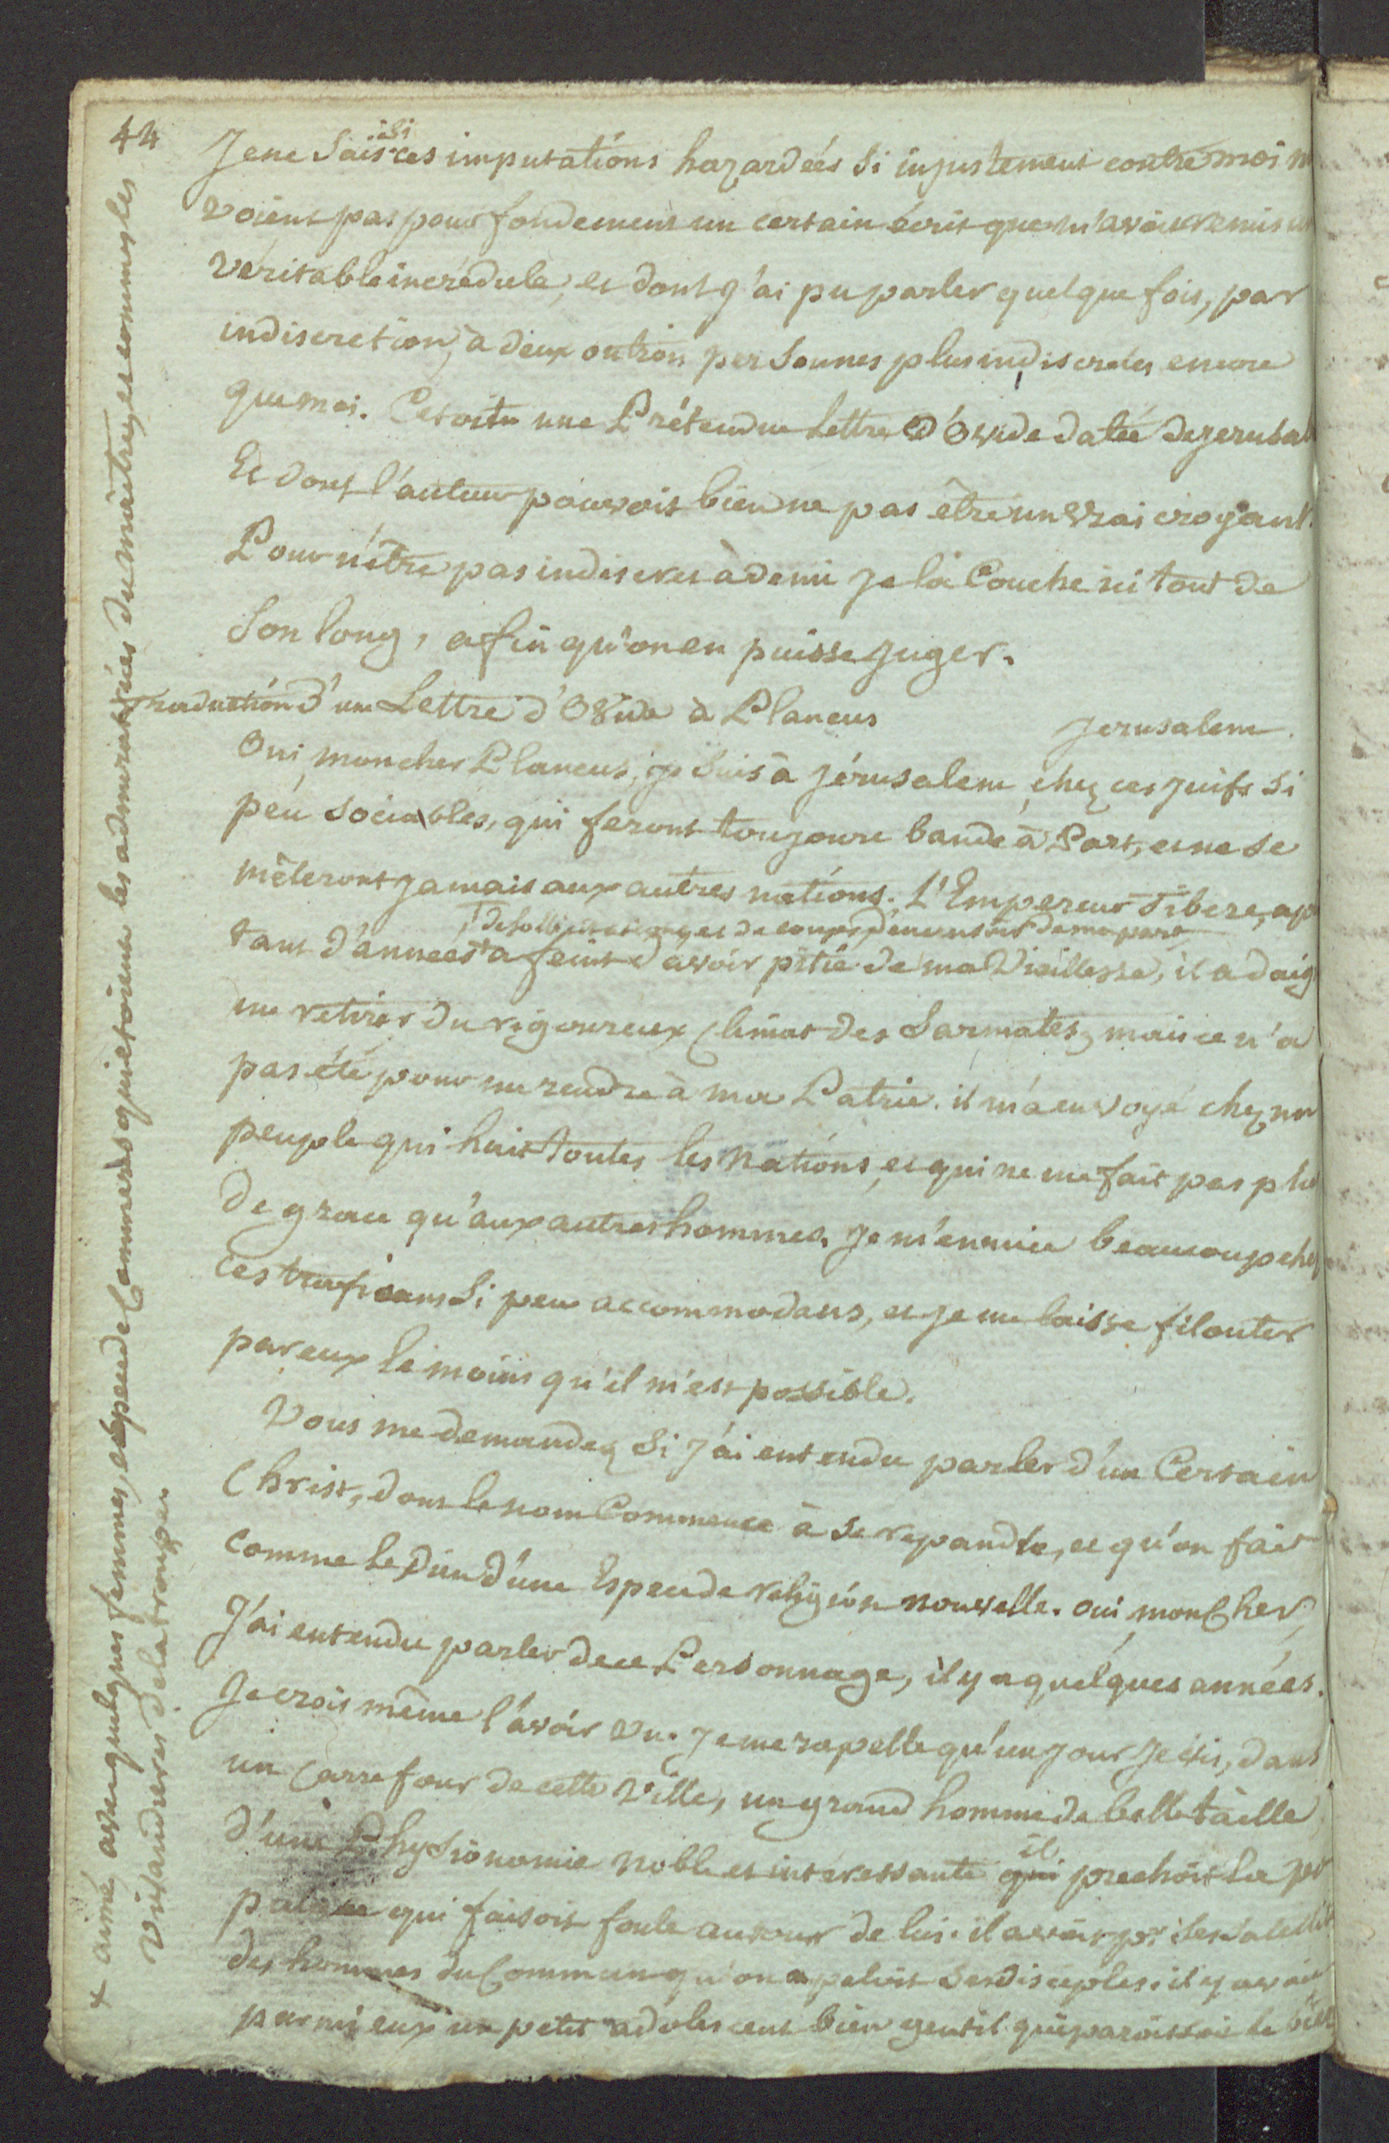 44
Je ne Sais si ces imputations hazardées si injustement contre moi n
voient pas pour fondement un certain écrit que m'avoit remis un
véritable incrédule, et dont j'ai pu parler quelque fois, par
indiscretion, à deux ou trois personnes plus indiscretes encore
que moi. C'etoit une Prétendue Lettre d'Ovide datée de jerusal
Et dont l'auteur pouvoit bien ne pas être un vrai croyant.
Pour n'être pas indiscret à demi je la Couche ici tout de
Son long, afin qu'on en puisse juger.
Traduction d'une Lettre d'Ovide à Plancus
Jerusalem.
Oui, mon cher Plancus, je suis à Jérusalem, chez ces juifs si
peu sociables, qui feront toujours bande à Part, et ne se
mêleront jamais aux autres nations. L'Empereur Tibere, ap
tant d'années de sollicitations, et de coups d'encensoir de ma part
a feint d'avoir pitié de ma Vieillesse, il a daig
me retirer du rigoureux Climat des Sarmates, mais ce n'a
pas été pour me rendre à ma Patrie. il m'a envoyé chez un
peuple qui hait toutes les Nations, et qui ne me fait pas plus
de grace qu'aux autres hommes. Je m'ennuie beaucoup chez
ces traficans si peu accommodans, et je me laisse filouter
par eux le moins qu'il m'est possible.
Vous me demandez si j'ai entendu parler d'un Certain
Christ, dont le nom Commence à se repandre, et qu'on fait
comme le Dieu d'une Espece de religion nouvelle. oui, mon Cher,
J'ai entendu parler de ce Personnage, il y a quelques années.
Je crois même l'avoir vu. Je me rapelle qu'un jour Je vis, dans
un Carrefour de cette Ville, un grand homme de belle taille
d'une Physionomie noble et interessante il qui prechoit la po
pulace qui faisoit foule autour de lui. il avoit pr
des hommes du Commun qu'on apeloit ses disciples. il y avoit
parmi eux un petit adolescent bien gentil qui paroissoit le bien
x aimé, avec quelques femmes, espece de Commeres qui etoient les admiratrices du maitre, et comme les
Vivandieres de la troupe.